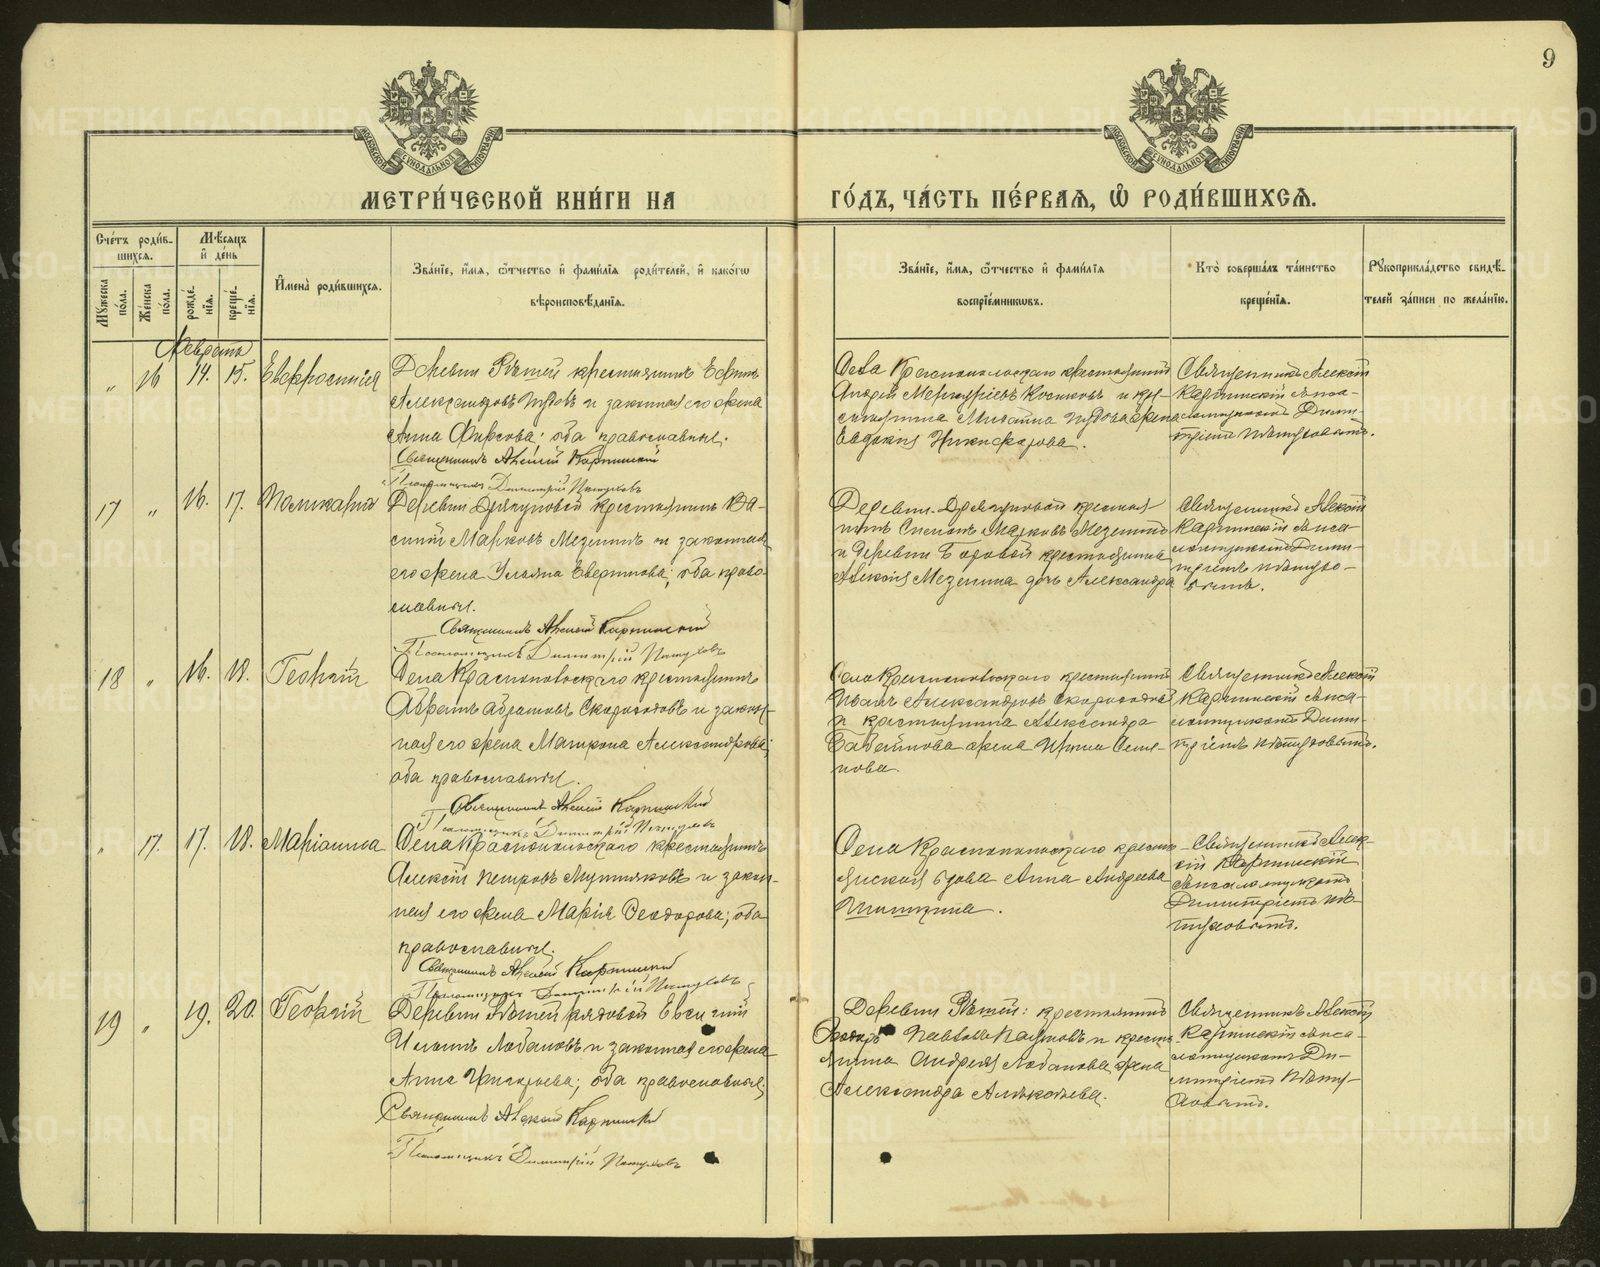 9
МОСКОВСКОЙ СѴНОДАЛЬНОЙ ТИПОГРАФІИ
МОСКОВСКОЙ СѴНОДАЛЬНОЙ ТИПОГРАФІИ
МЕТРИ́ЧЕСКОЙ КНИ́ГИ НА ГО́ДЪ, ЧА́СТЬ ПЕ́РВАѦ, Ѽ РОДИ́ВШИХСѦ.
Сче́тъ роди́в-
шихсѧ.
Мꙋ́жеска по́ла.
Же́нска по́ла.
Мѣ́сѧцъ и҆ де́нь
рожде́-нїѧ.
креще́-нїѧ.
И҆мена̀ роди́вшихсѧ.
Зва́нїе, и҆́мѧ, ѻ҆́тчество и҆ фами́лїѧ роди́телей, и҆ како́гѡ
вѣроисповѣ́данїѧ.
Зва́нїе, и҆́мѧ, ѻ҆́тчество и҆ фами́лїѧ
воспрїе́мникѡвъ.
Кто̀ соверша́лъ та́инство
креще́нїѧ.
Рꙋкоприкла́дство свидѣ́-
телей за́писи по жела́нїю.
Февраль
" 16 14. 15. Евфросинія
Деревни Рѣтей крестьянинъ Ефимъ
Александровъ и законная его жена
Анна Фирсова; оба православные.
Священникъ Алексій Карпинскій
Псаломщикъ Димитрій Пѣтуховъ
Села Краснопольскаго крестьянинъ
Андрей Меркурьевъ и кре-
стьянина жена
Евдокія Никифорова.
Священникъ Алексій
Карпинскій съ пса-
ломщикомъ Дими-
тріемъ Пѣтуховымъ.
17 " 16. 17. Поликарпъ
Деревни Дрягуновой крестьянинъ Ва-
силій Марковъ Мезенинъ и законная
его жена Ульяна; оба право-
славные.
Священникъ Алексій Карпинскій
Псаломщикъ Димитрій Пѣтуховъ
Деревни Дрягуновой крестья-
нинъ Марковъ Мезенинъ
и деревни Боровой крестьянина
Алексія Мезенина дочь Александра
Священникъ Алексій
Карпинскій съ пса-
ломщикомъ Дими-
тріемъ Пѣтухо-
вымъ.
18 " 16. 18. Георгій
Села Краснопольскаго крестьянинъ
Абрамъ Абрамовъ Скороходовъ и закон-
ная его жена Матрона Александрова;
оба православные.
Священникъ Алексій Карпинскій
Псаломщикъ Димитрій Пѣтуховъ
Села Краснопольскаго крестьянинъ
Иванъ Александровъ Скороходовъ
и крестьянина Александра
жена Ирина
Священникъ Алексій
Карпинскій съ пса-
ломщикомъ Дими-
тріемъ Пѣтуховымъ.
" 17. 17. 18. Маріанна
Села Краснопольскаго крестьянинъ
Алексій Петровъ и закон-
ная его жена Марія Ѳеодорова; оба
православные.
Священникъ Алексій Карпинскій
Псаломщикъ Димитрій Пѣтуховъ
Села Краснопольскаго кресть-
янская вдова Анна Андреева
Шипицина.
Священникъ Алек-
сій Карпинскій
съ псаломщикомъ
Димитріемъ Пѣ-
туховымъ.
19 " 19. 20. Георгій
Деревни Рѣтей рядовой Евсигній
Ильинъ Лобановъ и законная его жена
Анна Григорьева; оба православные;
Священникъ Алексій Карпинскій
Псаломщикъ Димитрій Пѣтуховъ
Деревни Рѣтей: крестьянинъ
Ѳеодоръ Павловъ и кресть-
янина Андрея Лобанова жена
Александра
Священникъ Алексій
Карпинскій съ пса-
ломщикомъ Ди-
митріемъ Пѣту-
ховымъ.
METRIKI.GASO-URAL.RU